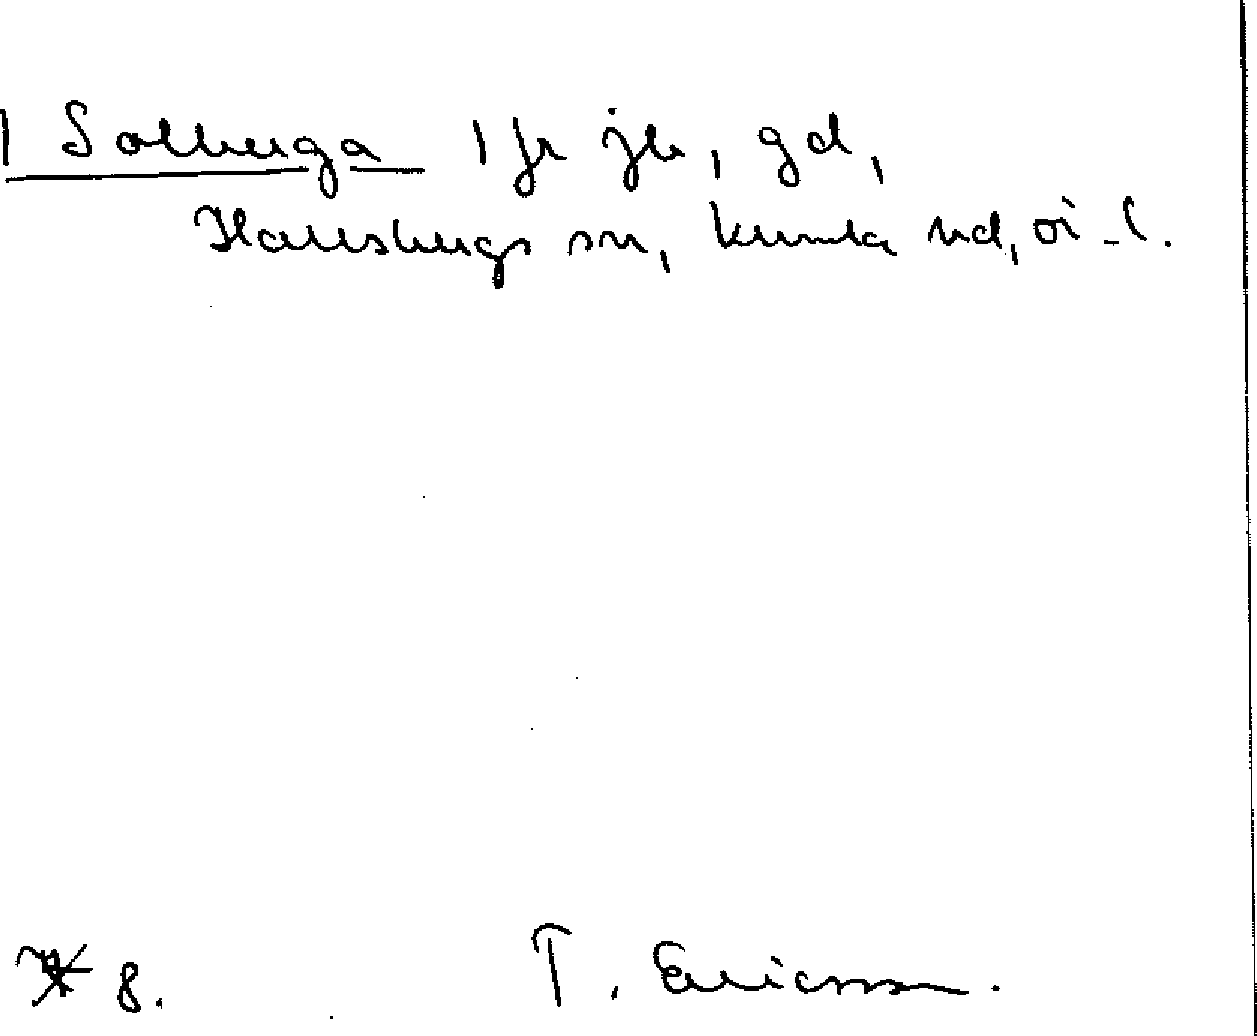 1 Solberga 1 fr jb, gd,
Hallsbergs sn, Kumla hd, ör. l.
8. T. Ericsson.